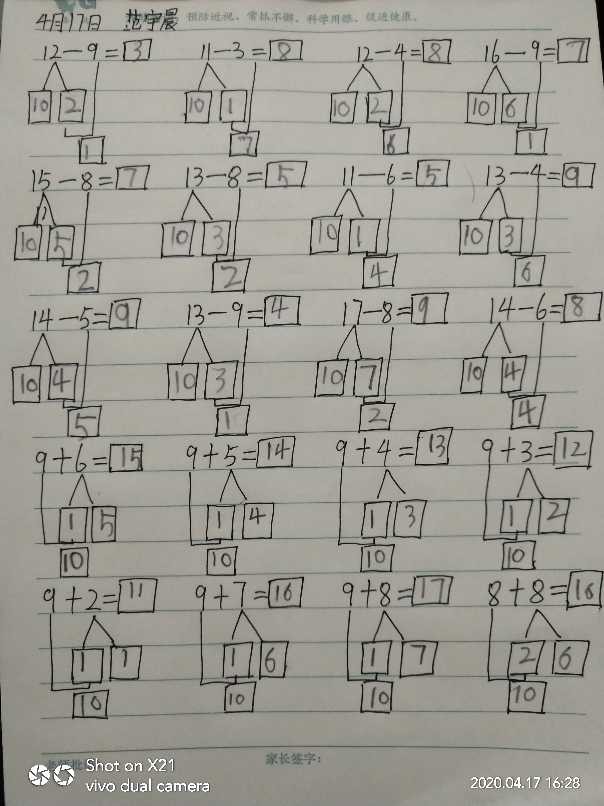 预防近视，常抓不懈，科学用眼，促进健康。
4月17日 范宇晨
12-9=3 11-3=8 12-4=8 16-9=7
10 2 10 1 10 2 10 6
1 7 6 1
15-8=7 13-8=5 11-6=5 13-4=9
10 5 10 3 10 1 10 3
2 2 4 6
14-5=9 13-9=4 17-8=9 14-6=8
10 4 10 3 10 7 10 4
5 1 2 4
9+6=15 9+5=14 9+4=13 9+3=12
1 5 1 4 1 3 1 2
10 10 10 10
9+2=11 9+7=16 9+8=17 8+8=16
1 1 1 6 1 7 2 6
10 10 10 10
家长签字：
Shot on X21
vivo dual camera
2020.04.17 16:28